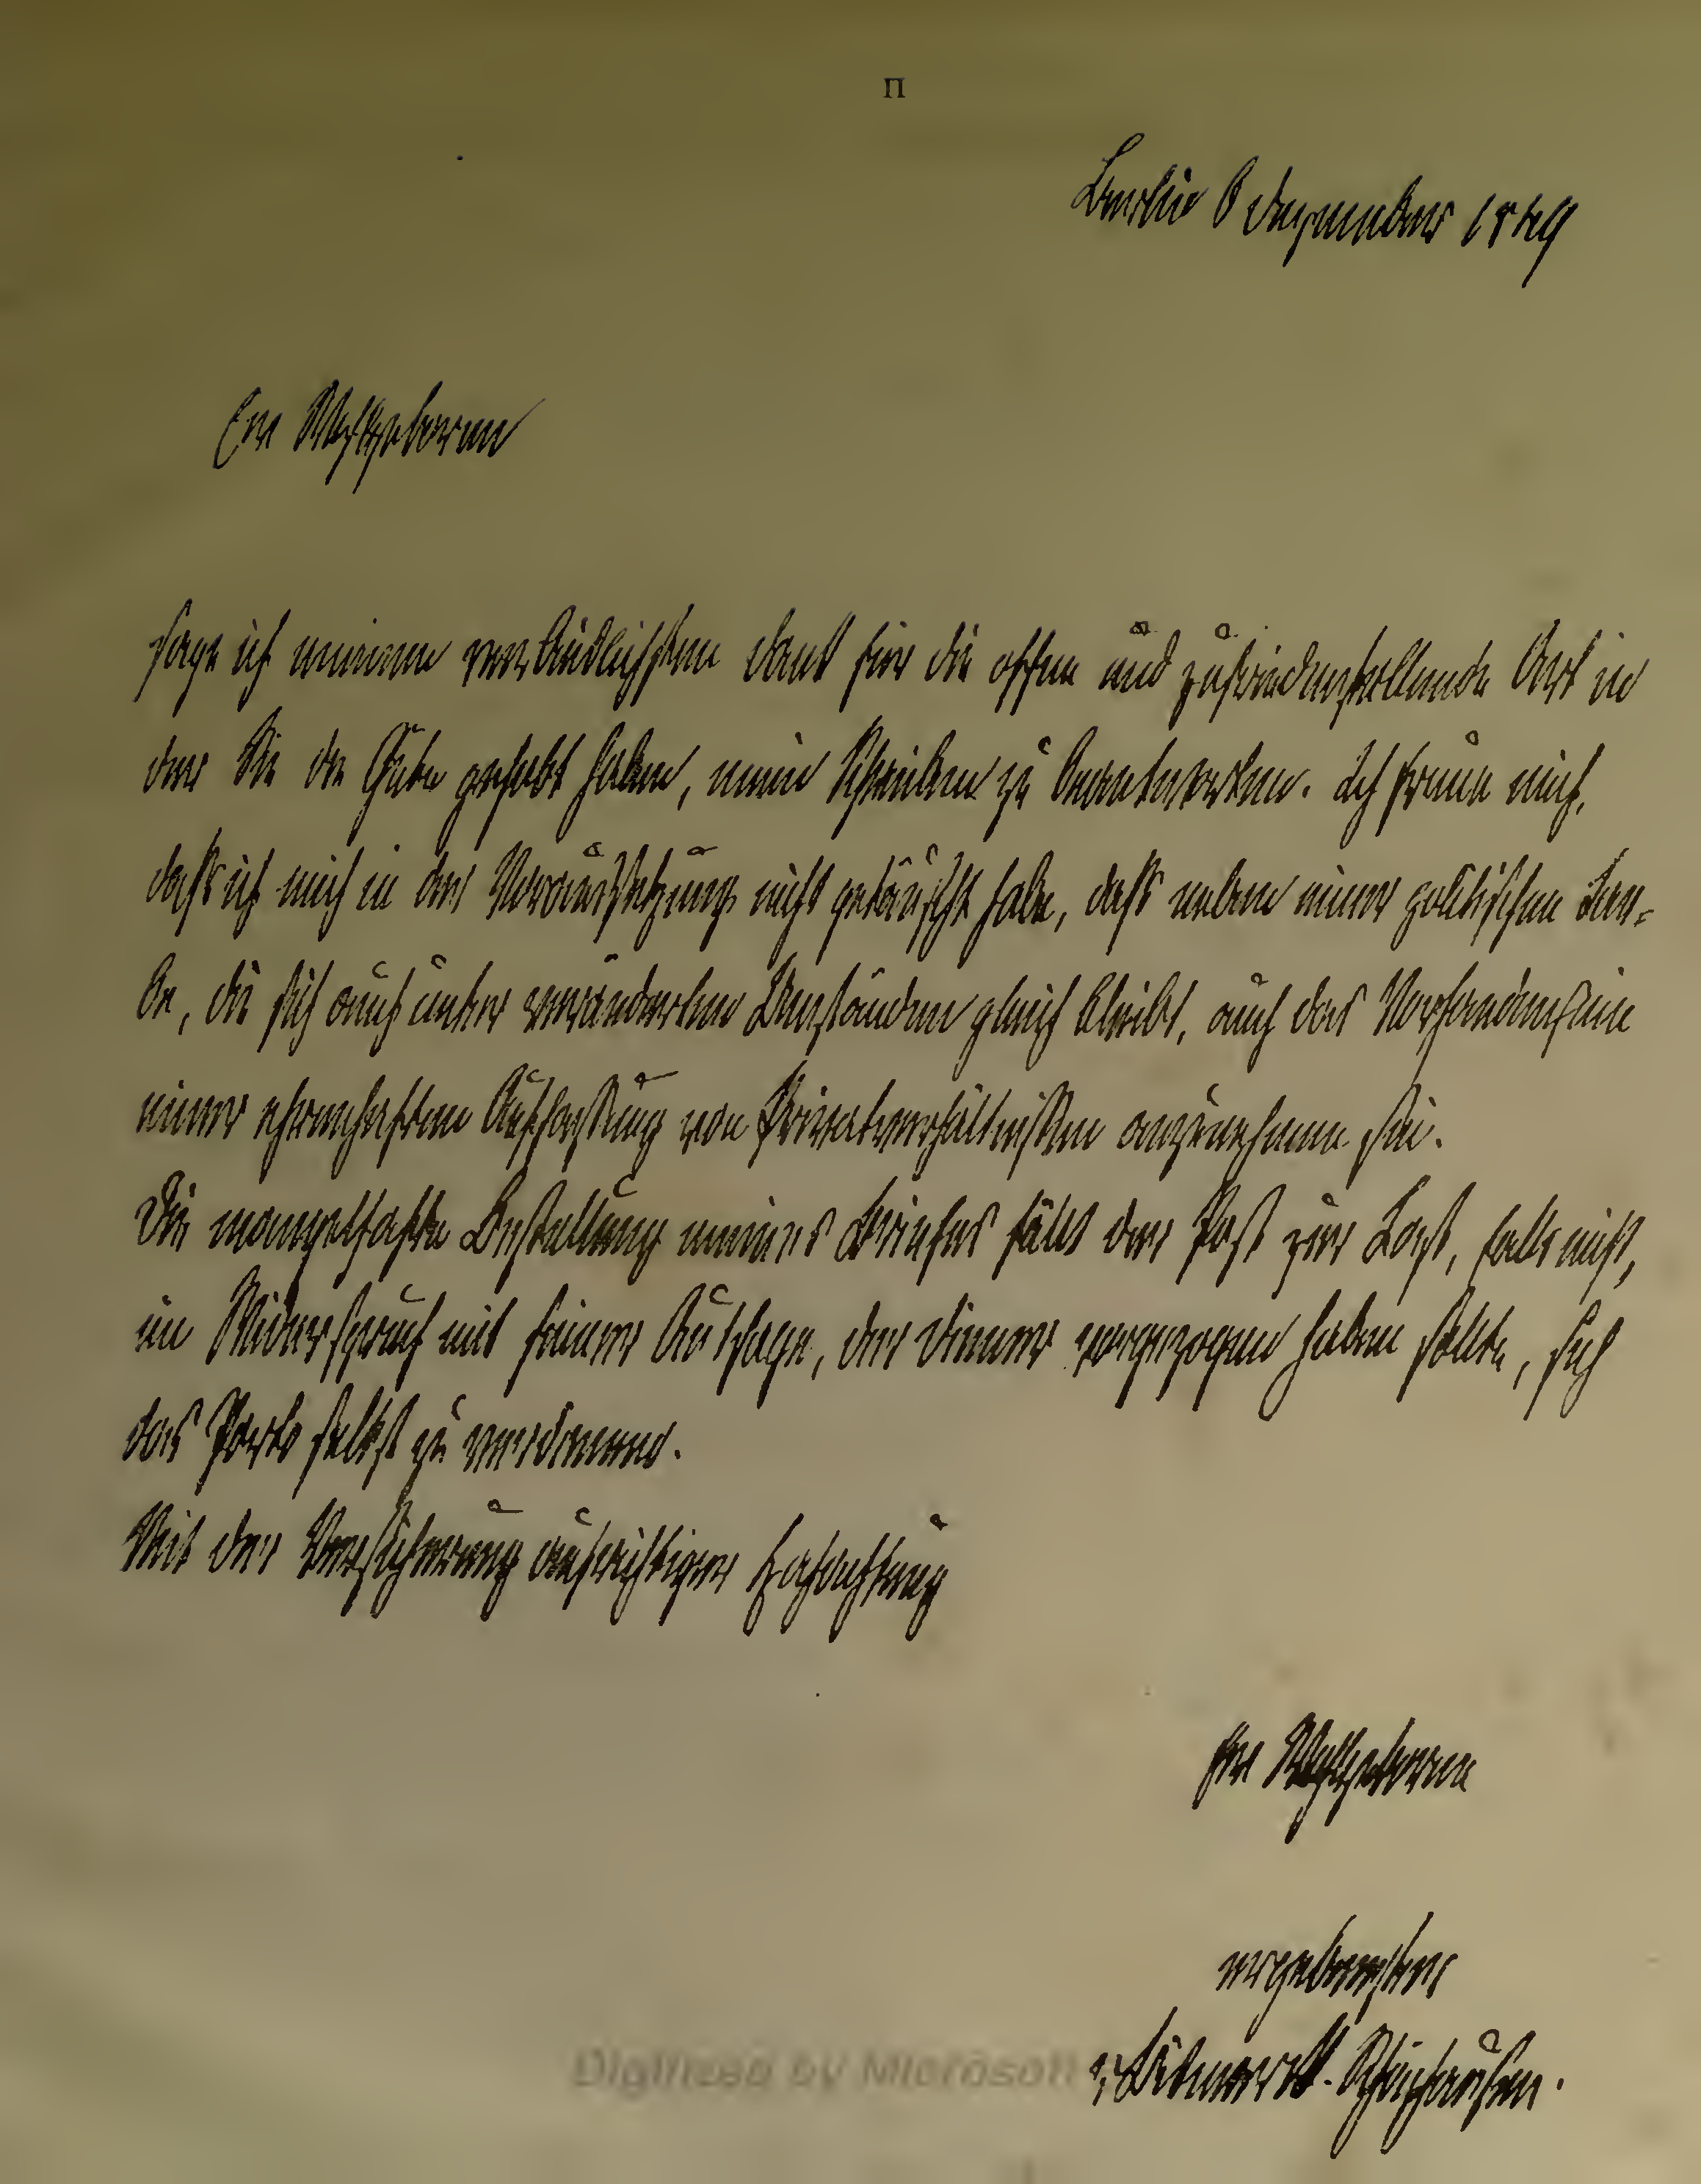 II
Berlin 6 Dezember 1849
Ew Wohlgeboren
sage ich meinen verbindlichsten Dank für die offne und zufriedenstellende Art in
der Sie die Güte gehabt haben, mein Schreiben zu beantworten. Ich freue mich,
daß ich mich in der Voraussetzung nicht getäuscht habe, daß neben einer politischen Far-
be, die sich auch unter veränderten Umständen gleich bleibt, auch das Vorhandensein
einer ehrenhaften Auffassung von Privatverhältnissen anzunehmen sei.
Die mangelhafte Bestellung meines Briefes fällt der Post zur Last, falls nicht,
im Widerspruch mit seiner Aussage, der Diener vorgezogen haben sollte, sich
das Porto selbst zu verdienen.
Mit der Versicherung aufrichtiger Hochachtung
Ew Wohlgeboren
ergebenster
v. Bismarck-Schönhausen.
Digitized by Microsoft